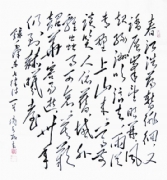 春江浩荡暂徘徊又
踏层峰望眼开风
起绿洲吹浪去雨从
青野上山来尊前
谈笑人依旧域外
鸡虫事可哀莫叹
韶华容易逝卅年
仍到赫曦台